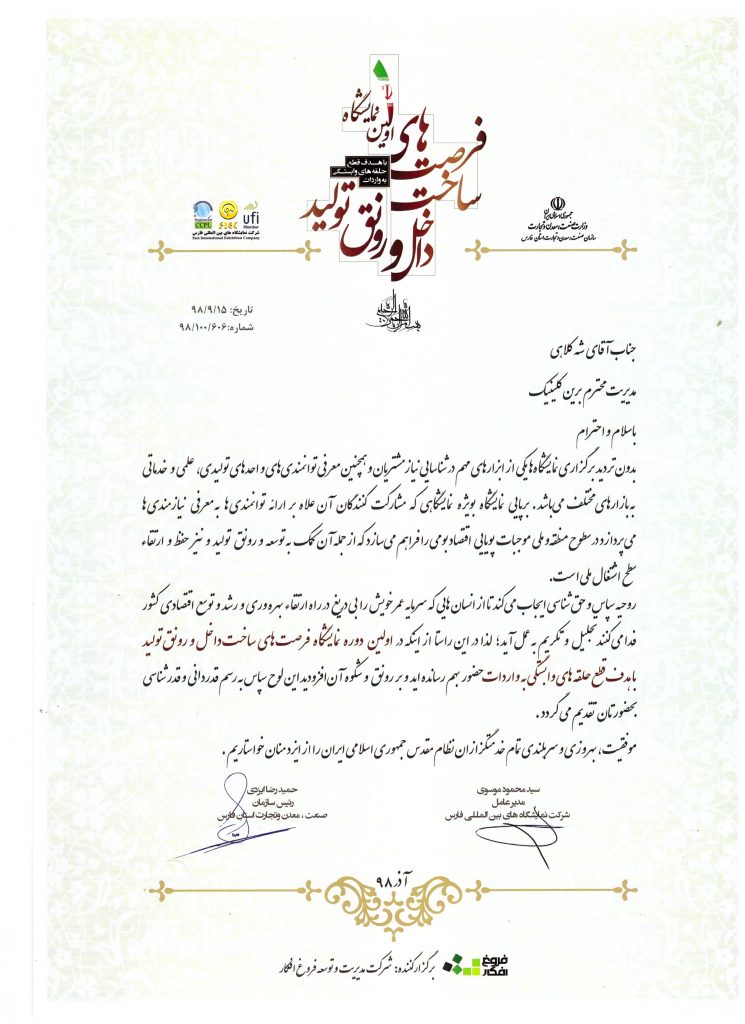 اولین نمایشگاه
فرصت های
ساخت
داخل و رونق تولید
با هدف قطع
حلقه های وابستگی
به واردات
جمهوری اسلامی ایران
وزارت صنعت، معدن و تجارت
سازمان صنعت، معدن و تجارت استان فارس
UCPI
ufi
Member
شرکت نمایشگاه های بین المللی فارس
Fars International Exhibition Company
بسم الله الرحمن الرحیم
تاریخ: ۹۸/۹/۱۵
شماره: ۹۸/۱۰۰/۶۰۶
جناب آقای شه کلاهی
مدیریت محترم برین کلینیک
باسلام و احترام
بدون تردید برگزاری نمایشگاه ها یکی از ابزارهای مهم در شناسایی نیاز مشتریان و همچنین معرفی توانمندی های واحدهای تولیدی، علمی و خدماتی
به بازارهای مختلف می باشد. برپایی نمایشگاه بویژه نمایشگاهی که مشارکت کنندگان آن علاه بر ارائه توانمندی ها به معرفی نیازمندی ها
می پردازد در سطوح منطقه و ملی موجبات پویایی اقتصاد بومی را فراهم می سازد که از جمله آن کمک به توسعه و رونق تولید و نیز حفظ و ارتقاء
سطح اشتغال ملی است.
روحیه سپاس و حق شناسی ایجاب می کند تا از انسان هایی که سرمایه عمر خویش را بی دریغ در راه ارتقاء بهره وری و رشد و توسع اقتصادی کشور
فدا می کنند تجلیل و تکریم به عمل آید؛ لذا در این راستا از اینکه در اولین دوره نمایشگاه فرصت های ساخت داخل و رونق تولید
با هدف قطع حلقه های وابستگی به واردات حضور بهم رسانده اید و بر رونق و شکوه آن افزودید این لوح سپاس به رسم قدردانی و قدرشناسی
بحضورتان تقدیم می گردد.
موفقیت، بهروزی و سربلندی تمام خدمتگزاران نظام مقدس جمهوری اسلامی ایران را از ایزد منان خواستاریم.
سید محمود موسوی
مدیر عامل
شرکت نمایشگاه های بین المللی فارس
حمید رضا ایزدی
رئیس سازمان
صنعت، معدن وتجارت استان فارس
آذر ۹۸
فروغ
افکار
برگزار کننده: شرکت مدیریت و توسعه فروغ افکار